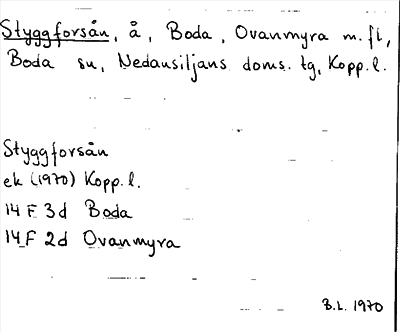 Styggforsån, å, Boda, Ovanmyra m.fl,
Boda sn, Nedansiljans doms. tg, Kopp.l.
Styggforsån
ek (1970) Kopp.l.
14 F 3d Boda
14 F 2d Ovanmyra
B.L. 1970